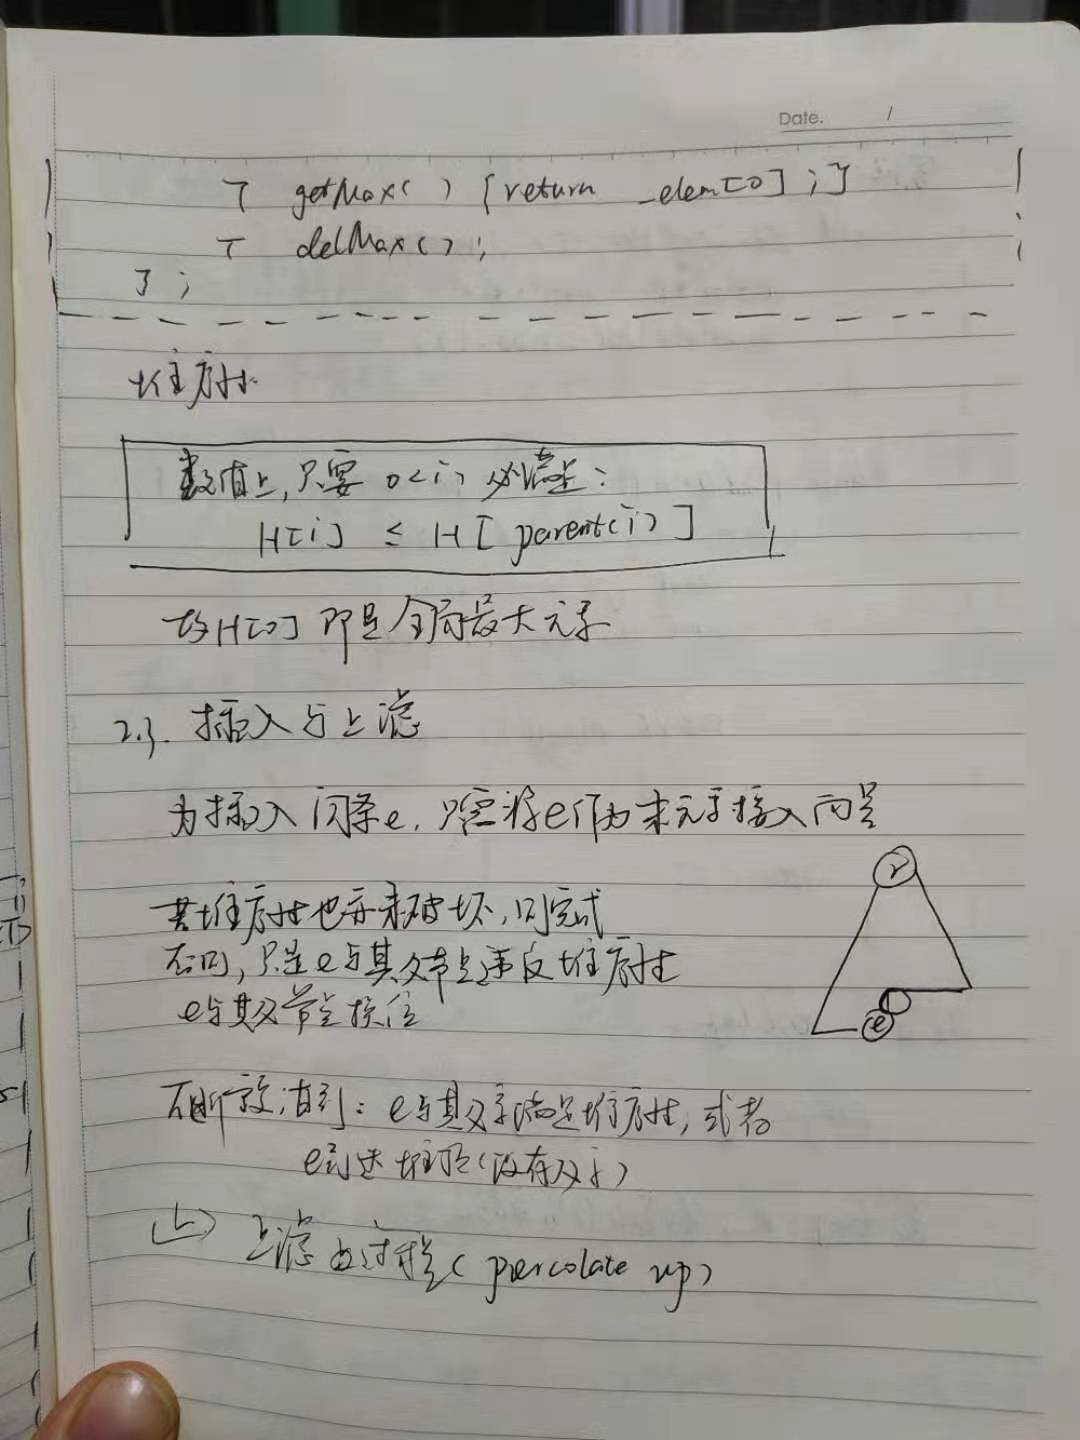 Date. /
T getMax( ) { return _elem[0] ; }
T delMax( ) ;
} ;
堆序性
数值上, 只要 0<i, 必满足:
H[i] ≤ H[ parent(i) ]
故H[0] 即是全局最大元素
2.3. 插入与上滤
为插入词条e, 只需将e作为末元素接入向量
若堆序性也亦未破坏, 则完成
否则, 只是e与其父节点违反堆序性
e与其父节点换位
不断重复, 直到: e与其父亲满足堆序性, 或者
e到达堆顶(没有父亲)
上滤的过程( percolate up)
r
e